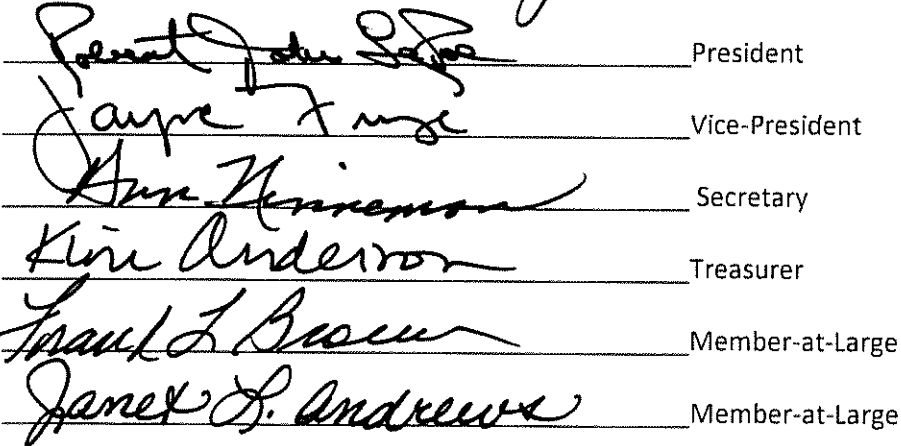 Robert John President
Jayne Vice-President
Ann Hinneman Secretary
Kim Anderson Treasurer
Frank L Brown Member-at-Large
Janet L. Andrews Member-at-Large